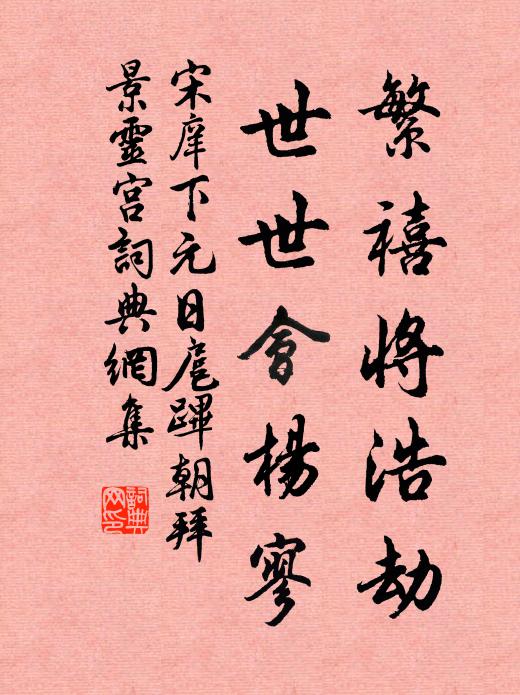 繁禧將浩劫
世世會楊寥
宋庠下元日扈蹕朝拜
景靈宮詞典網集
詞典網印